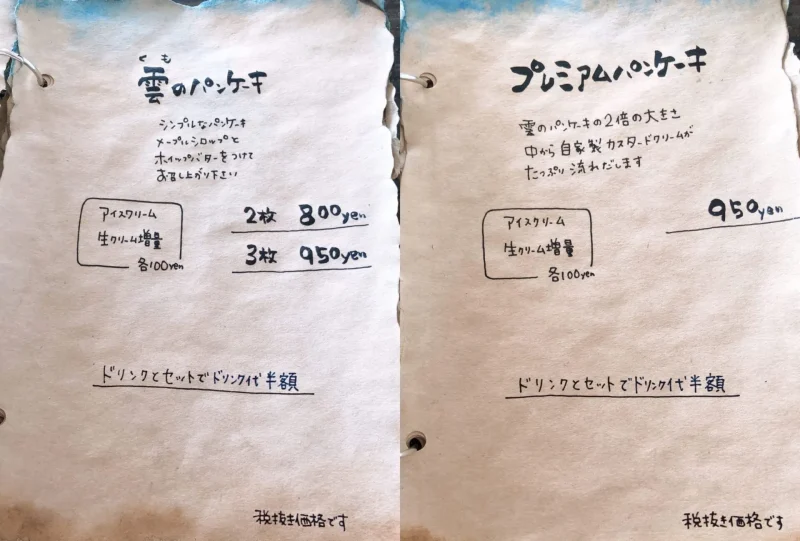 くも
雲のパンケーキ
シンプルなパンケーキ
メープルシロップと
ホイップバターをつけて
お召し上がり下さい
アイスクリーム
生クリーム増量
各100yen
2枚 800yen
3枚 950yen
ドリンクとセットでドリンク代半額
税抜き価格です
プレミアムパンケーキ
雲のパンケーキの2倍の大きさ
中から自家製カスタードクリームが
たっぷり流れだします
950yen
アイスクリーム
生クリーム増量
各100yen
ドリンクとセットでドリンク代半額
税抜き価格です